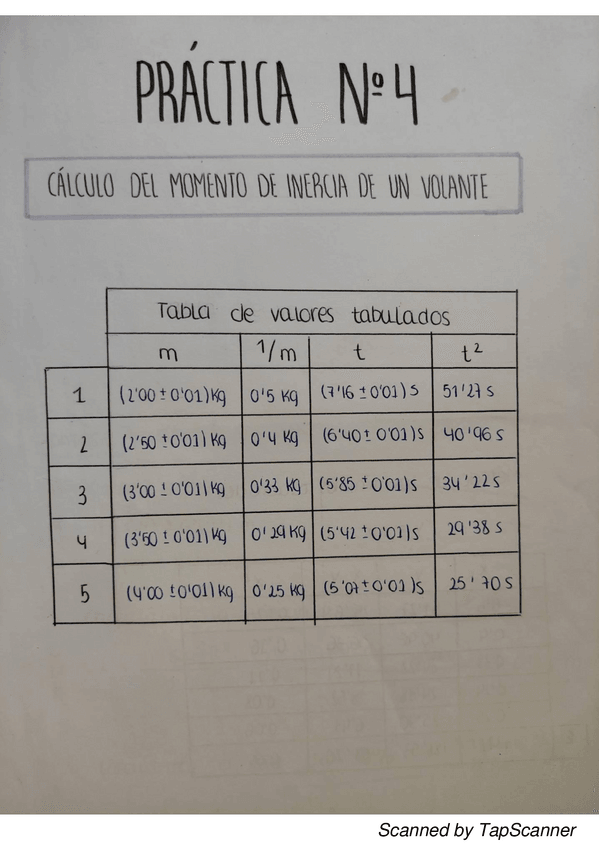 PRÁCTICA Nº4
CÁLCULO DEL MOMENTO DE INERCIA DE UN VOLANTE
Tabla de valores tabulados
m 1/m t t²
1 (2'00 ± 0'01) Kg 0'5 Kg (7'16 ± 0'01) s 51'27 s
2 (2'50 ± 0'01) Kg 0'4 Kg (6'40 ± 0'01) s 40'96 s
3 (3'00 ± 0'01) Kg 0'33 Kg (5'85 ± 0'01) s 34'22 s
4 (3'50 ± 0'01) Kg 0'29 Kg (5'42 ± 0'01) s 29'38 s
5 (4'00 ± 0'01) Kg 0'25 Kg (5'07 ± 0'01) s 25'70 s
Scanned by TapScanner